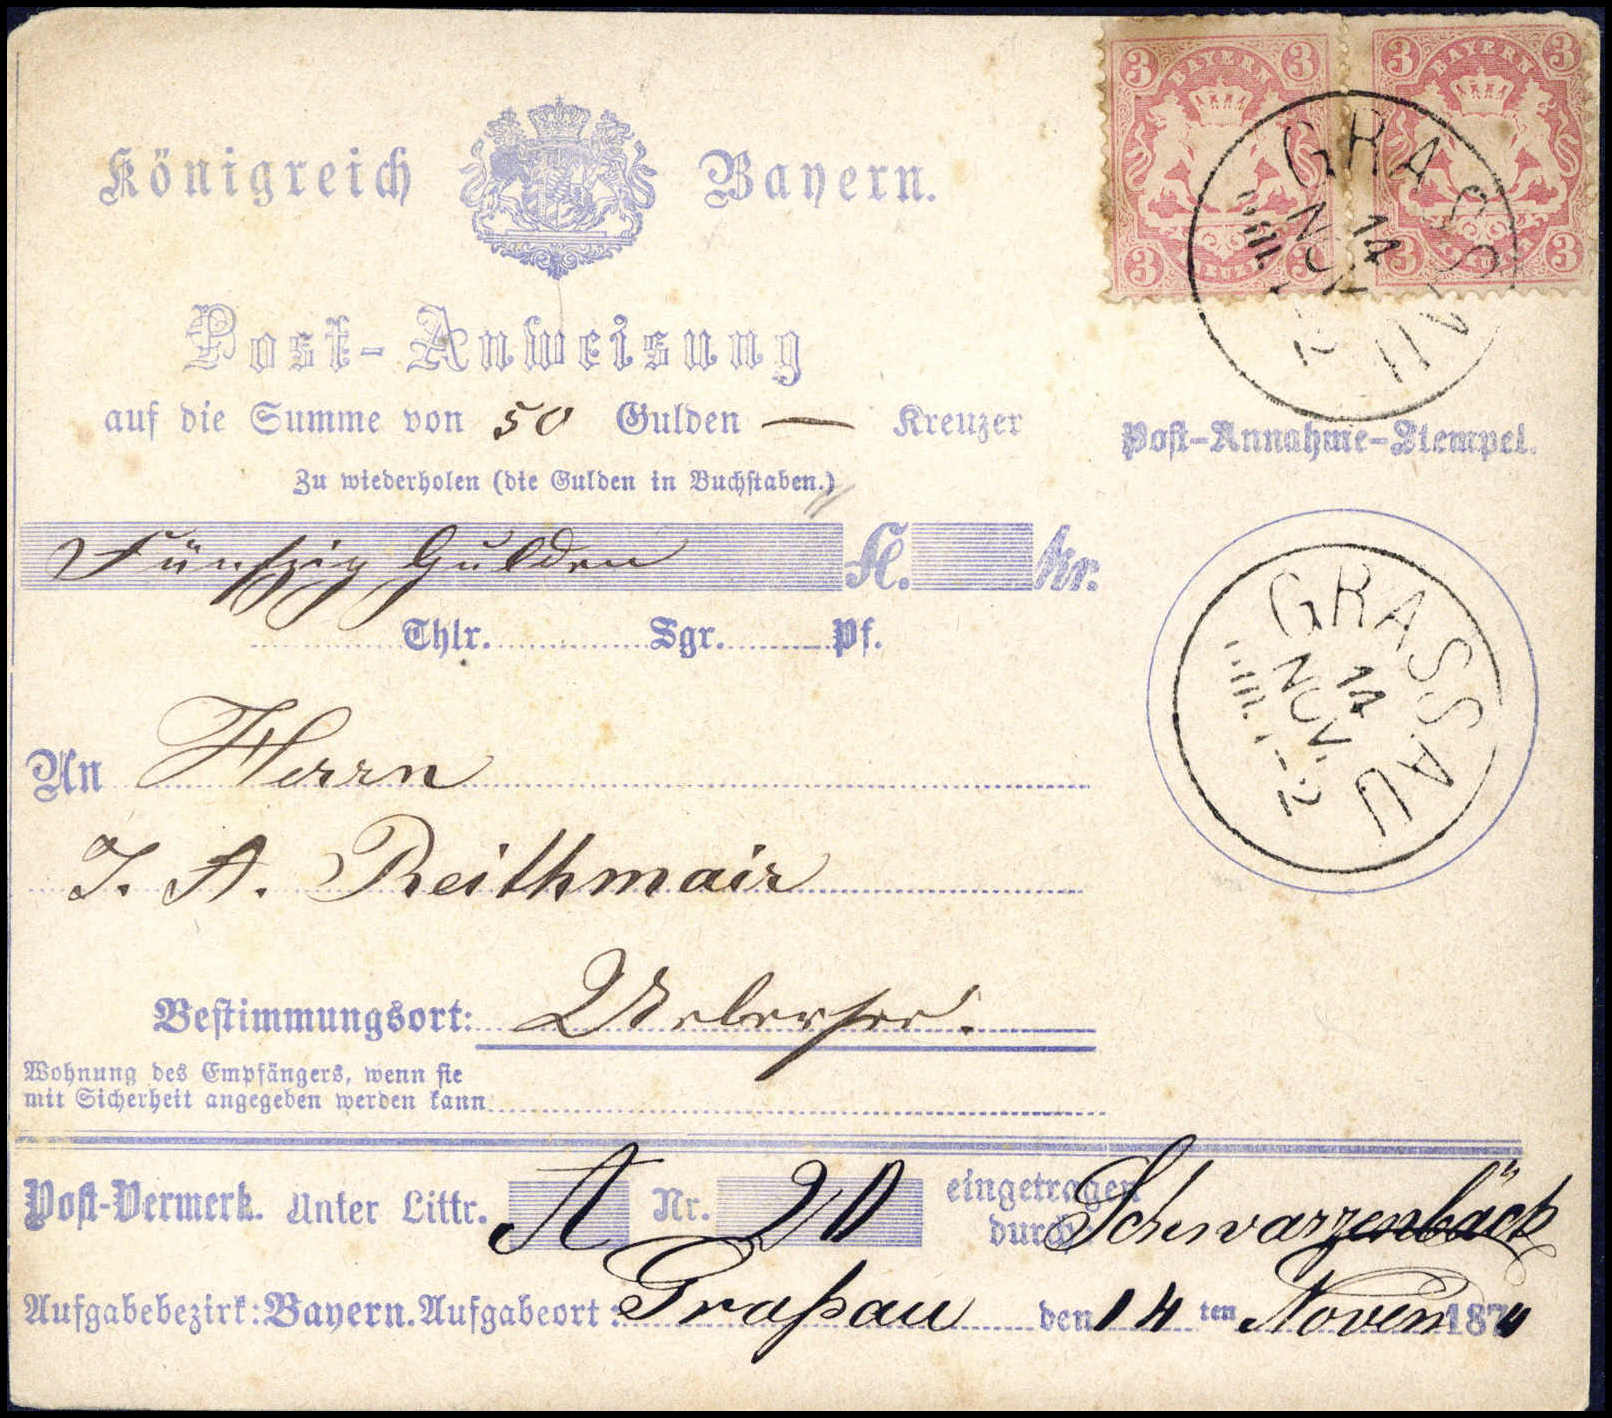 Königreich Bayern.
3 BAYERN 3
3 KREUZER 3
3 BAYERN 3
3 3
GRASSAU
14
NOV.
Post-Anweisung
auf die Summe von 50 Gulden — Kreuzer
Zu wiederholen (die Gulden in Buchstaben.)
Post-Annahme-Stempel.
Fünfzig Gulden fl. kr.
Thlr. Sgr. Pf.
GRASSAU
14
NOV.
An Herrn
J. A. Reithmair
Bestimmungsort: Uebersee.
Wohnung des Empfängers, wenn sie
mit Sicherheit angegeben werden kann
Post-Vermerk. Unter Littr. A Nr. 20 eingetragen
durch Schwarzenbäck
Aufgabebezirk: Bayern. Aufgabeort: Graßau den 14 ten Novem 187